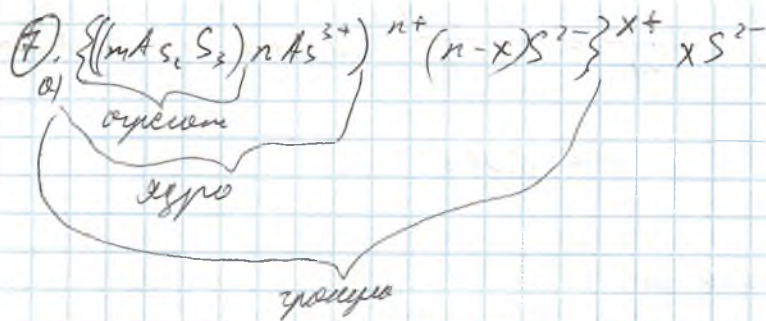 7. {((mAs₂S₃)nAs³⁺)ⁿ⁺(n-x)S²⁻}ˣ⁺ xS²⁻
а)
агрегат
ядро
гранула